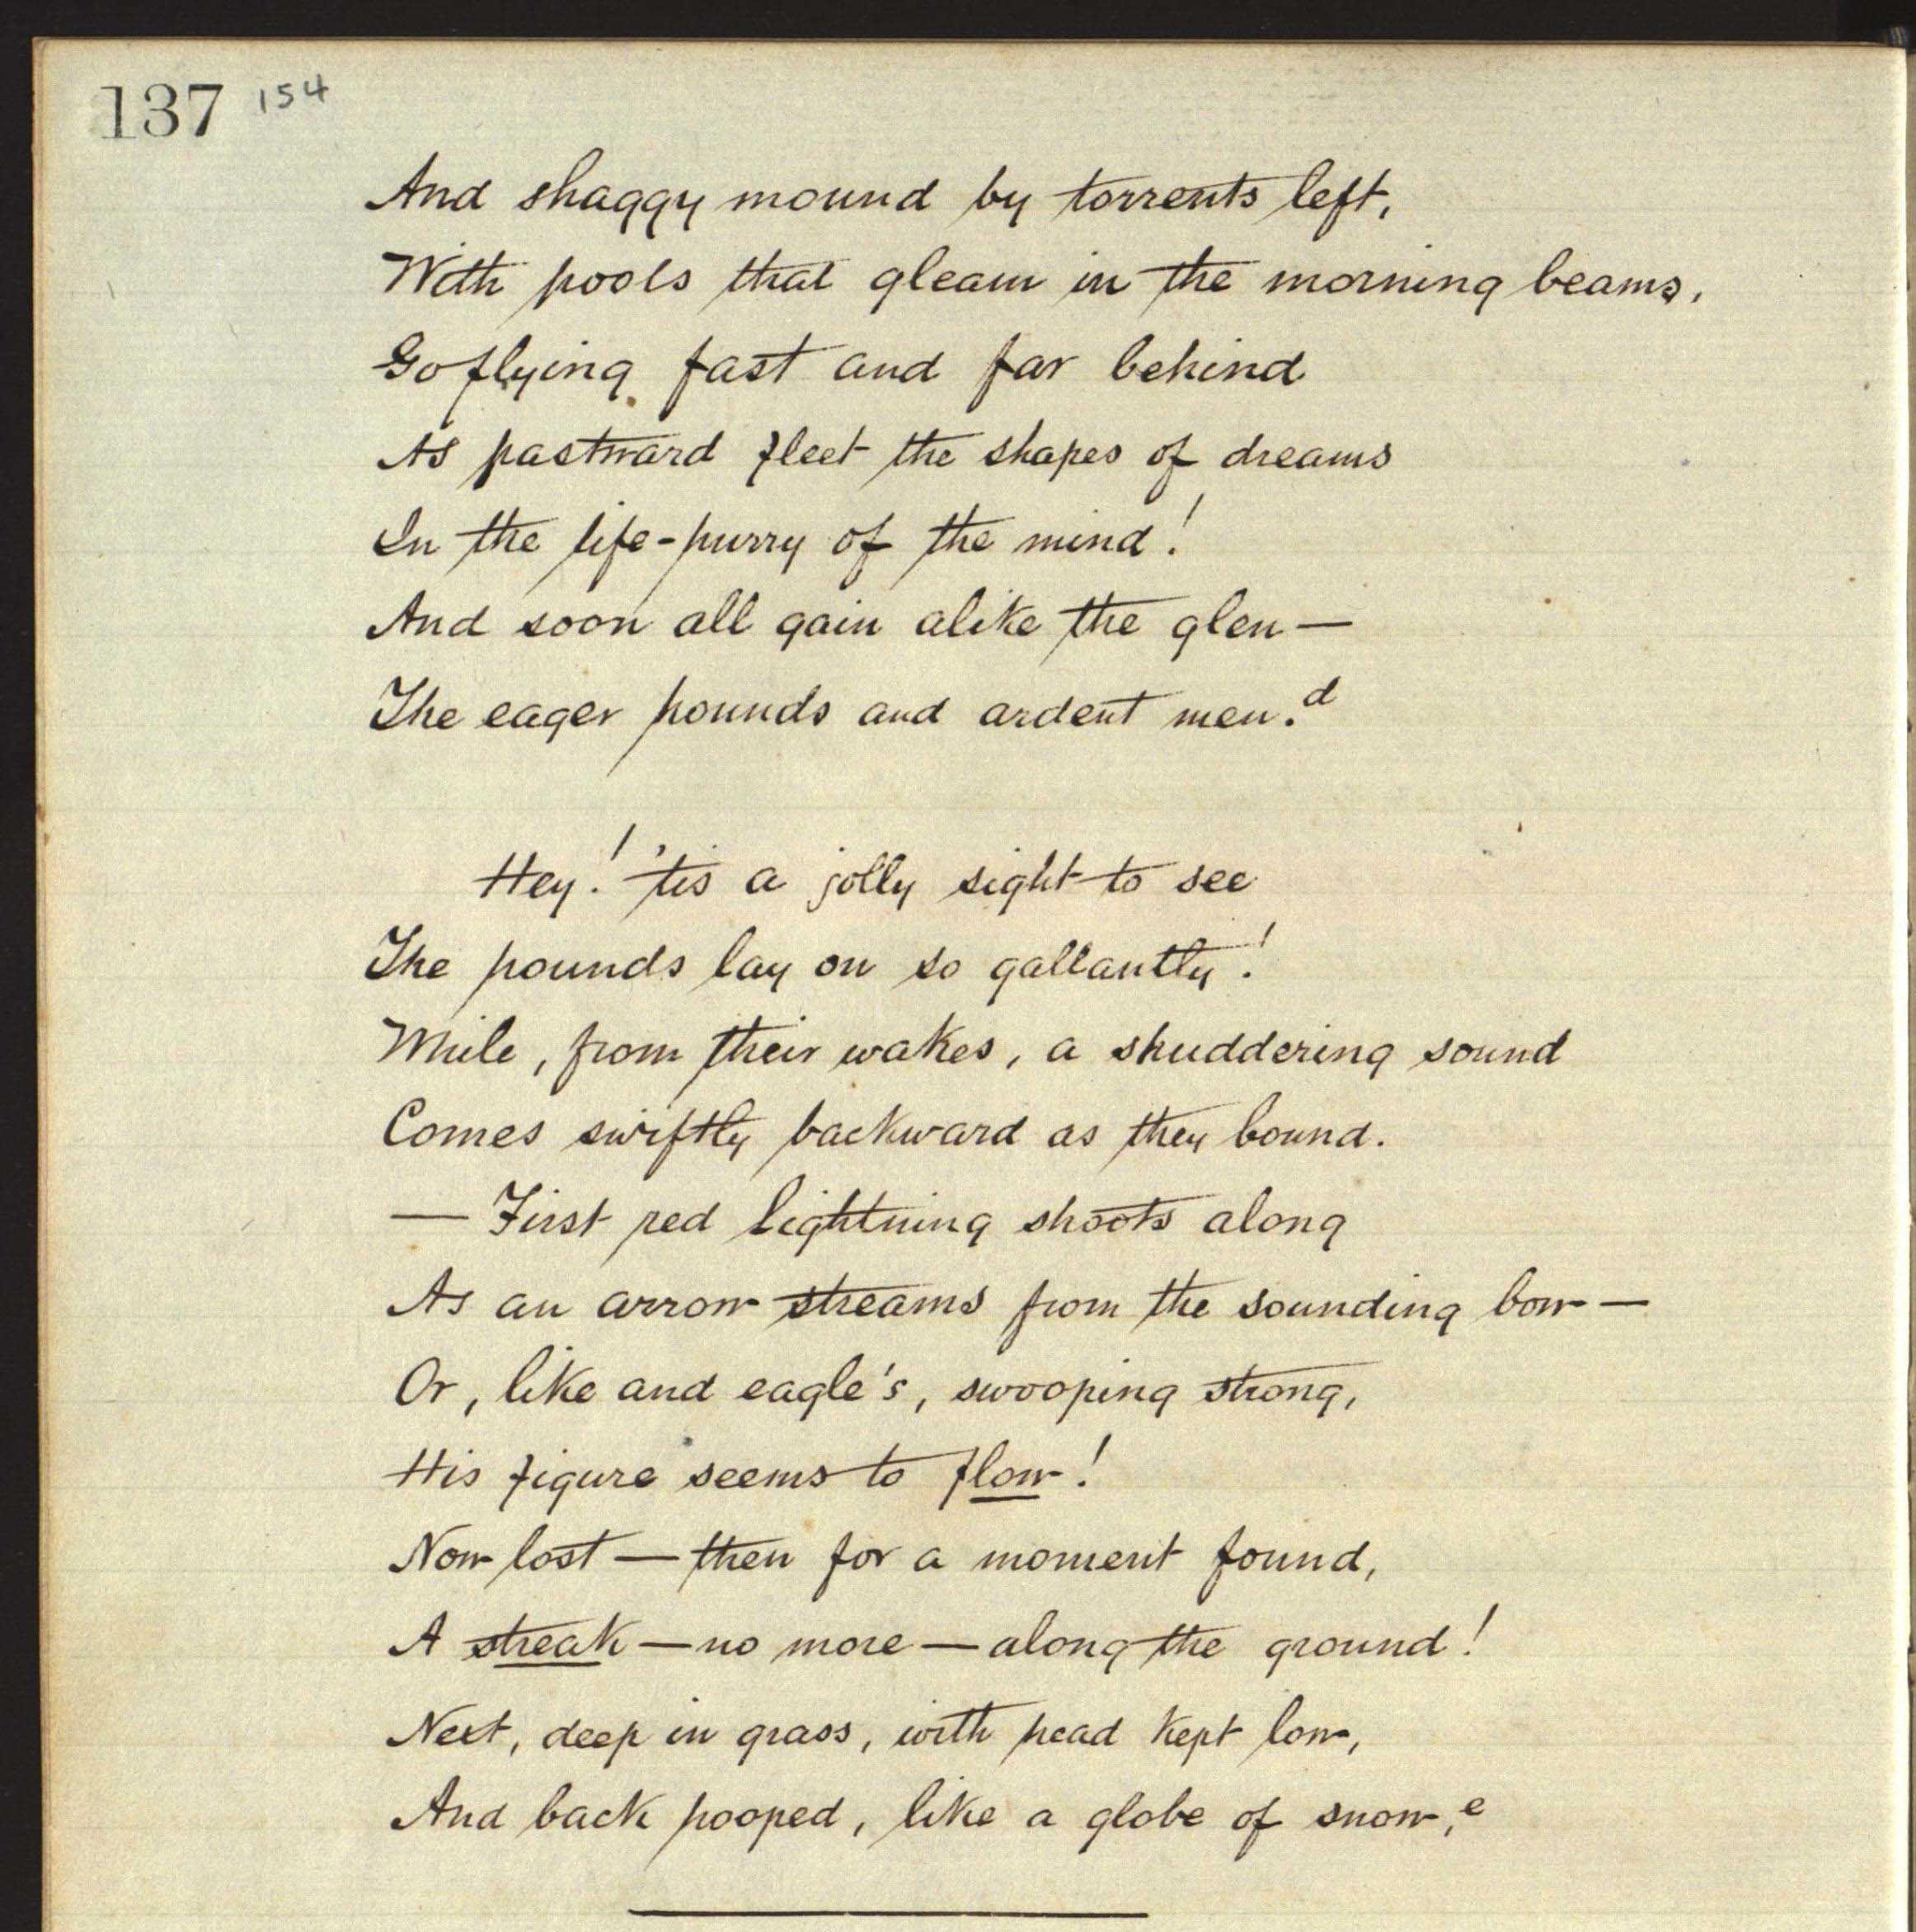 137 154
And shaggy mound by torrents left,
With pools that gleam in the morning beams,
Go flying fast and far behind
As pastward fleet the shapes of dreams
In the life-hurry of the mind!
And soon all gain alike the glen—
The eager hounds and ardent men.d
Hey! 'tis a jolly sight to see
The hounds lay on so gallantly!
While, from their wakes, a shuddering sound
Comes swiftly backward as they bound.
— First red lightning shoots along
As an arrow streams from the sounding bow—
Or, like and eagle's, swooping strong,
His figure seems to flow!
Now lost — then for a moment found,
A streak — no more — along the ground!
Next, deep in grass, with head kept low,
And back hooped, like a globe of snow,e